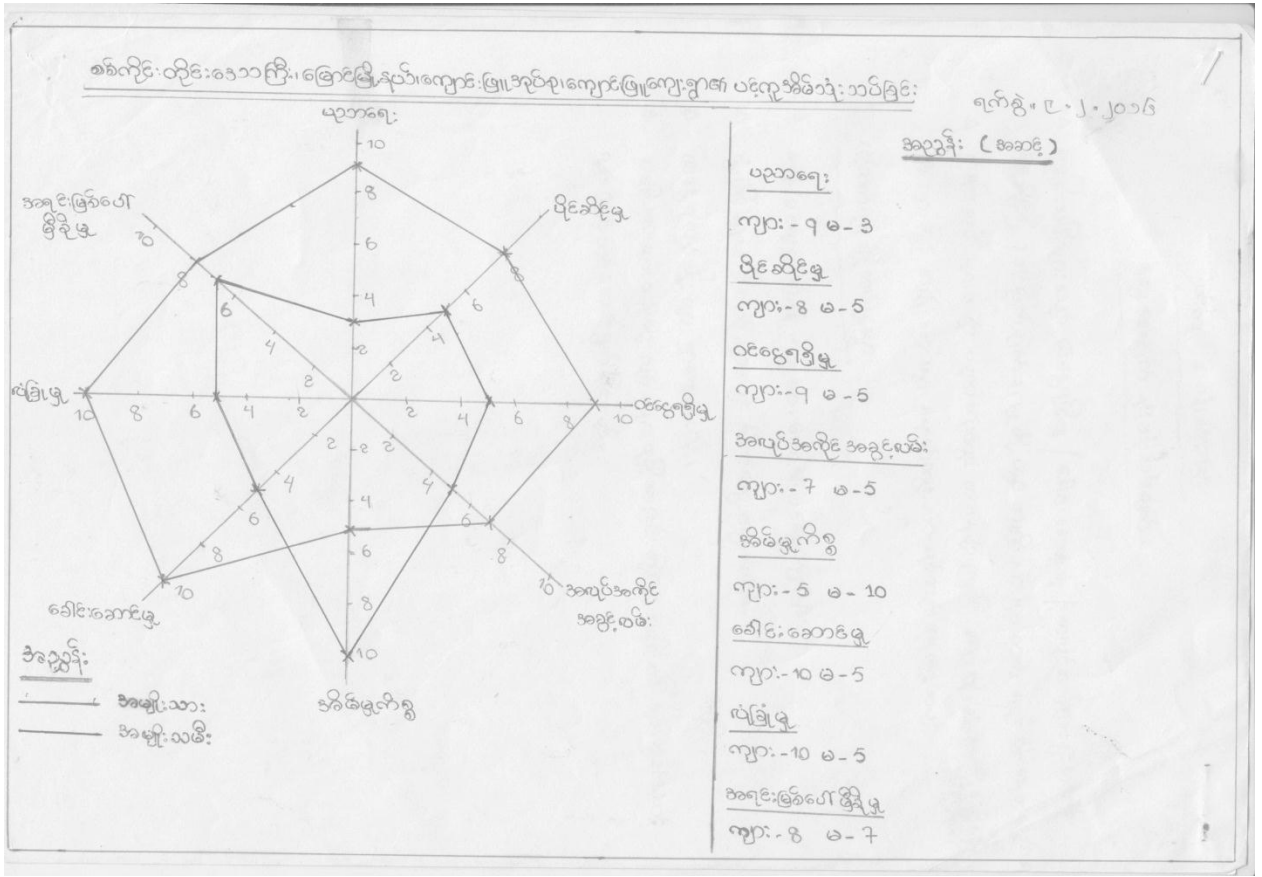 စစ်ကိုင်းတိုင်းဒေသကြီး၊မြောင်မြို့နယ်၊ကျောင်းဖြူအုပ်စု၊ကျောင်းဖြူကျေးရွာ၏ ပင့်ကူအိမ်သုံးသပ်ခြင်း
ရက်စွဲ။ ၉-၂-၂၀၁၆
ပညာရေး
10
8
6
4
2
ပိုင်ဆိုင်မှု
8
6
4
2
ဝင်ငွေရရှိမှု
10
8
6
4
2
အလုပ်အကိုင်
အခွင့်လမ်း
10
8
6
4
2
အိမ်မှုကိစ္စ
10
8
6
4
2
ခေါင်းဆောင်မှု
10
8
6
4
2
လုံခြုံမှု
10
8
6
4
2
အရင်းမြစ်ပေါ်
မှီခိုမှု
10
8
6
4
2
အညွှန်း
အမျိုးသား
အမျိုးသမီး
အညွှန်း (အဆင့်)
ပညာရေး
ကျား - 9 မ - 3
ပိုင်ဆိုင်မှု
ကျား - 8 မ - 5
ဝင်ငွေရရှိမှု
ကျား - 9 မ - 5
အလုပ်အကိုင်အခွင့်လမ်း
ကျား - 7 မ - 5
အိမ်မှုကိစ္စ
ကျား - 5 မ - 10
ခေါင်းဆောင်မှု
ကျား - 10 မ - 5
လုံခြုံမှု
ကျား - 10 မ - 5
အရင်းမြစ်ပေါ်မှီခိုမှု
ကျား - 8 မ - 7